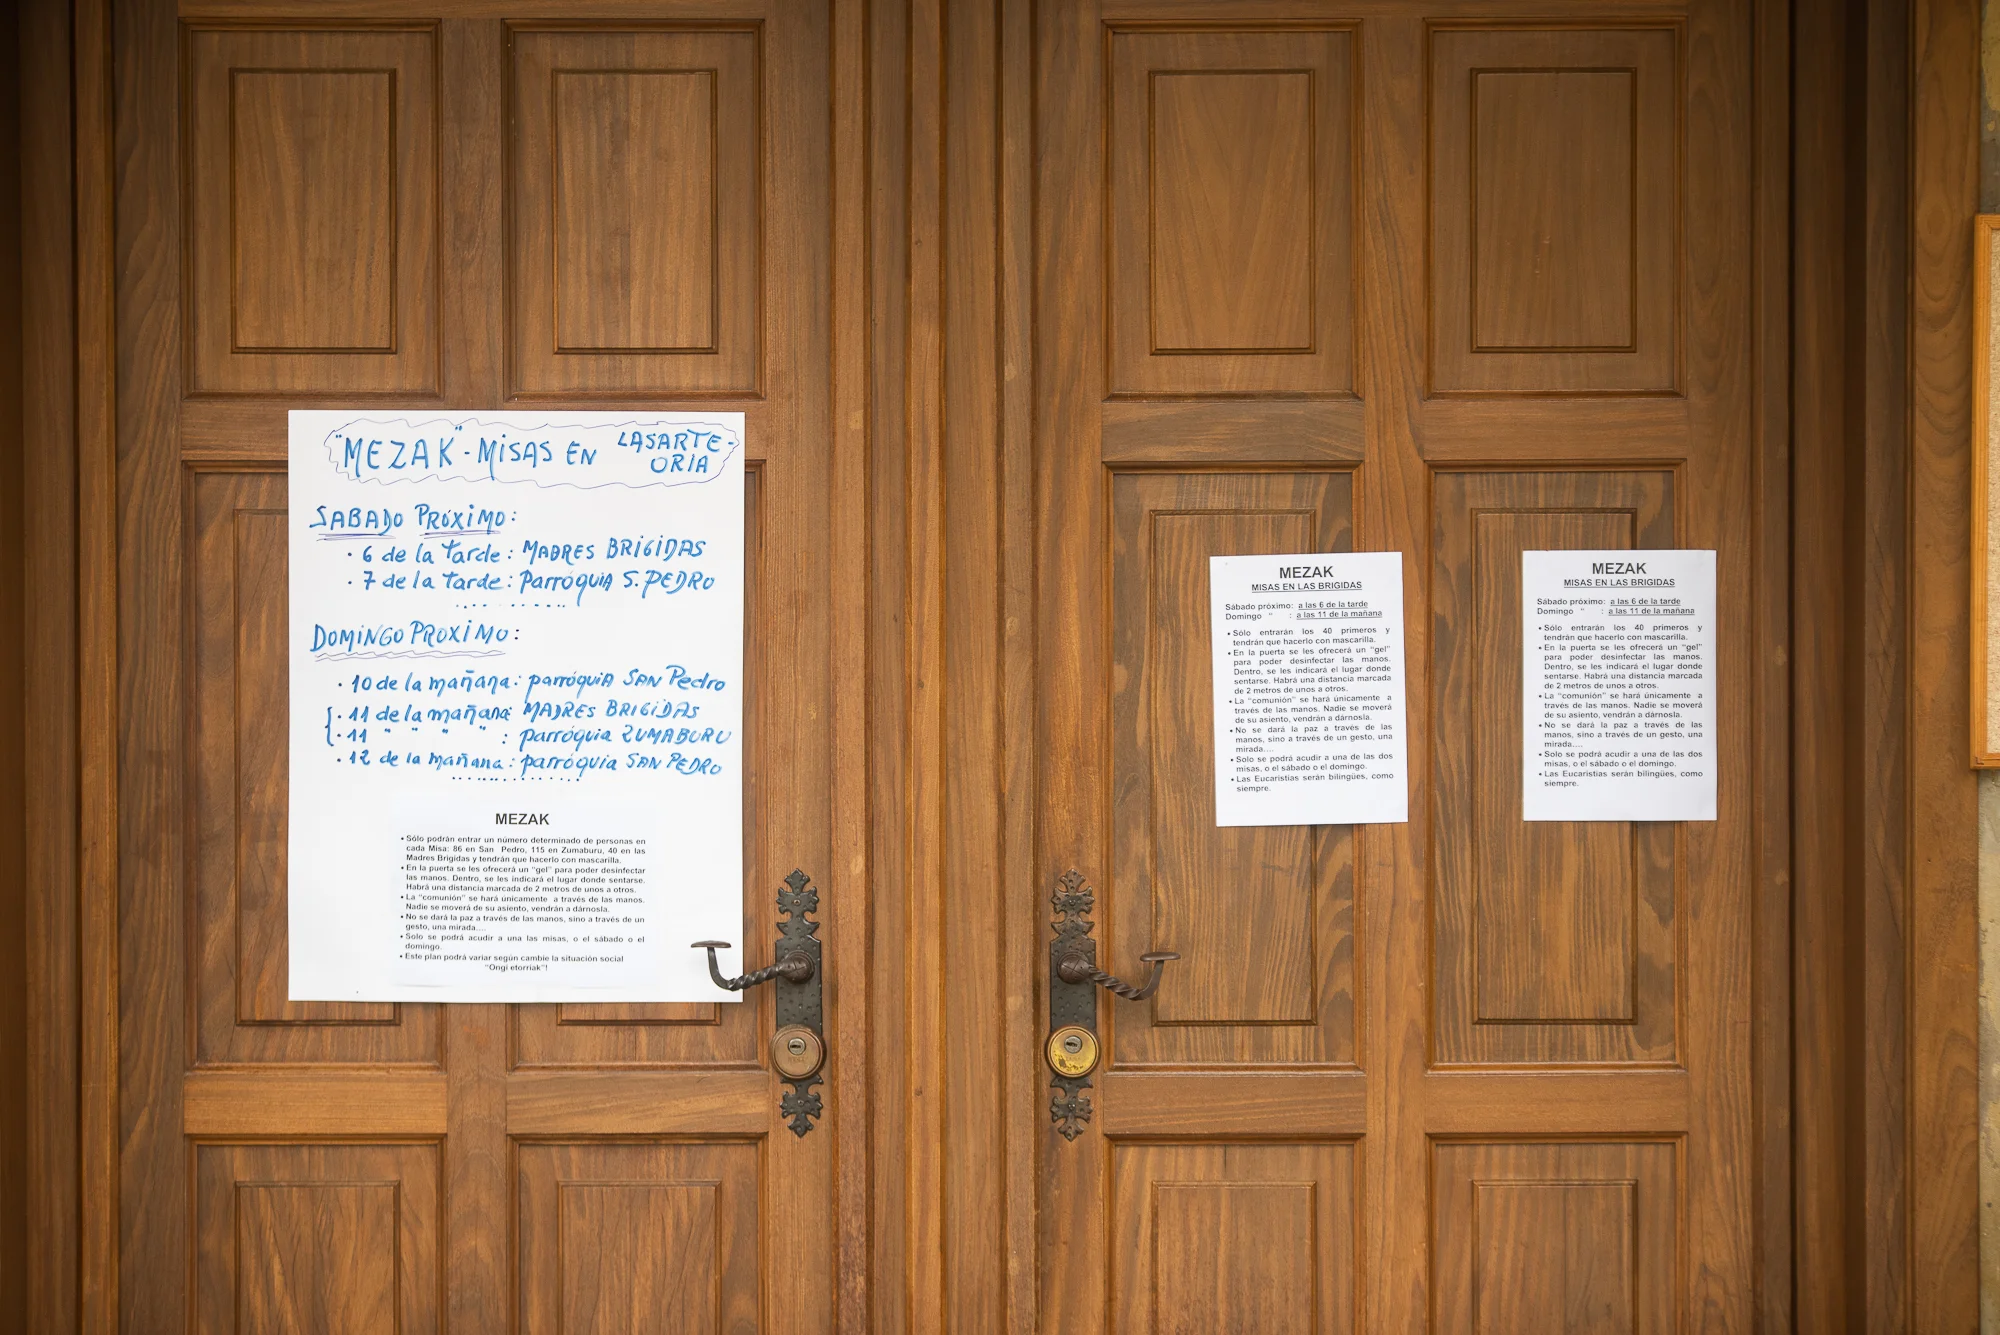 "MEZAK" - MISAS EN LASARTE-
ORIA
SABADO PRÓXIMO:
· 6 de la tarde: MADRES BRIGIDAS
· 7 de la tarde: Parróquia S. PEDRO
DOMINGO PROXIMO:
· 10 de la mañana: parróquia SAN Pedro
· 11 de la mañana: MADRES BRIGIDAS
· 11 " " " : parróquia ZUMABURU
· 12 de la mañana: parróquia SAN PEDRO
MEZAK
• Sólo podrán entrar un número determinado de personas en
cada Misa: 86 en San Pedro, 115 en Zumaburu, 40 en las
Madres Brigidas y tendrán que hacerlo con mascarilla.
• En la puerta se les ofrecerá un "gel" para poder desinfectar
las manos. Dentro, se les indicará el lugar donde sentarse.
Habrá una distancia marcada de 2 metros de unos a otros.
• La "comunión" se hará únicamente a través de las manos.
Nadie se moverá de su asiento, vendrán a dárnosla.
• No se dará la paz a través de las manos, sino a través de un
gesto, una mirada....
• Solo se podrá acudir a una las misas, o el sábado o el
domingo.
• Este plan podrá variar según cambie la situación social
"Ongi etorriak"!
MEZAK
MISAS EN LAS BRIGIDAS
Sábado próximo: a las 6 de la tarde
Domingo " : a las 11 de la mañana
• Sólo entrarán los 40 primeros y
tendrán que hacerlo con mascarilla.
• En la puerta se les ofrecerá un "gel"
para poder desinfectar las manos.
Dentro, se les indicará el lugar donde
sentarse. Habrá una distancia marcada
de 2 metros de unos a otros.
• La "comunión" se hará únicamente a
través de las manos. Nadie se moverá
de su asiento, vendrán a dárnosla.
• No se dará la paz a través de las
manos, sino a través de un gesto, una
mirada....
• Solo se podrá acudir a una de las dos
misas, o el sábado o el domingo.
• Las Eucaristias serán bilingües, como
siempre.
MEZAK
MISAS EN LAS BRIGIDAS
Sábado próximo: a las 6 de la tarde
Domingo " : a las 11 de la mañana
• Sólo entrarán los 40 primeros y
tendrán que hacerlo con mascarilla.
• En la puerta se les ofrecerá un "gel"
para poder desinfectar las manos.
Dentro, se les indicará el lugar donde
sentarse. Habrá una distancia marcada
de 2 metros de unos a otros.
• La "comunión" se hará únicamente a
través de las manos. Nadie se moverá
de su asiento, vendrán a dárnosla.
• No se dará la paz a través de las
manos, sino a través de un gesto, una
mirada....
• Solo se podrá acudir a una de las dos
misas, o el sábado o el domingo.
• Las Eucaristias serán bilingües, como
siempre.